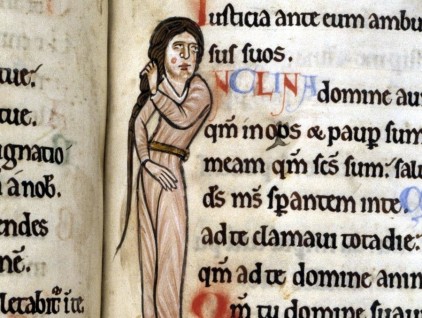 tue.
tue.
gnatio
a nob.
endes
nē.
letabit̄ i te.
Iusticia ante eum ambu
sus suos.
INCLINA domine au
qm̄ inops & paup sum
meam qm̄ sc̄s sum: salu
ds̄ ms̄ sperantem in te.
ad te clamaui tota die:
qm̄ ad te domine anim
Qm̄ tu domine suau